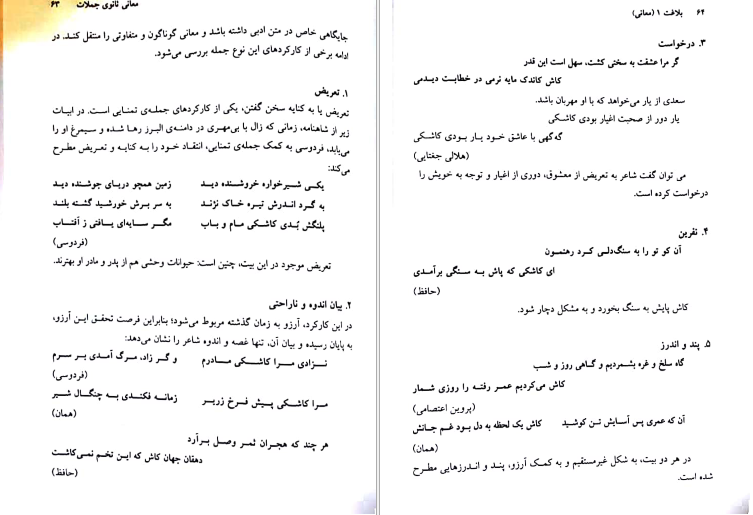 معانی ثانوی جملات ۶۳
جایگاهی خاص در متن ادبی داشته باشد و معانی گوناگون و متفاوتی را منتقل کنند. در
ادامه برخی از کارکردهای این نوع جمله بررسی می‌شود.
۱. تعریض
تعریض یا به کنایه سخن گفتن، یکی از کارکردهای جمله‌ی تمنایی است. در ابیات
زیر از شاهنامه، زمانی که زال با بی‌مهری در دامنه‌ی البرز رها شده و سیمرغ او را
می‌یابد، فردوسی به کمک جمله‌ی تمنایی، انتقاد خود را به کنایه و تعریض مطرح
می‌کند:
یکی شیرخواره خروشنده دید زمین همچو دریای جوشنده دید
به گرد اندرش تیره خاک نژند به سر برش خورشید گشته بلند
پلنگش بُدی کاشکی مام و باب مگر سایه‌ای یافتی ز آفتاب
(فردوسی)
تعریض موجود در این بیت، چنین است: حیوانات وحشی هم از پدر و مادر او بهترند.
۲. بیان اندوه و ناراحتی
در این کارکرد، آرزو به زمان گذشته مربوط می‌شود؛ بنابراین فرصت تحقق این آرزو،
به پایان رسیده و بیان آن، تنها غصه و اندوه شاعر را نشان می‌دهد:
نزادی مرا کاشکی مادرم و گر زاد، مرگ آمدی بر سرم
(فردوسی)
مرا کاشکی پیش فرخ زریر زمانه فکندی به چنگال شیر
(همان)
هر چند که هجران ثمر وصل برآرد
دهقان جهان کاش که این تخم نمی‌کاشت
(حافظ)
۶۴ بلاغت ۱ (معانی)
۳. درخواست
گر مرا عشقت به سختی کشت، سهل است این قدر
کاش کاندک مایه نرمی در خطابت دیدمی
سعدی از یار می‌خواهد که با او مهربان باشد.
یار دور از صحبت اغیار بودی کاشکی
گه‌گهی با عاشق خود یار بودی کاشکی
(هلالی جغتایی)
می توان گفت شاعر به تعریض از معشوق، دوری از اغیار و توجه به خویش را
درخواست کرده است.
۴. نفرین
آن کو تو را به سنگ‌دلی کرد رهنمون
ای کاشکی که پاش به سنگی برآمدی
(حافظ)
کاش پایش به سنگ بخورد و به مشکل دچار شود.
۵. پند و اندرز
گاه سلخ و غره بشمردیم و گاهی روز و شب
کاش می‌کردیم عمر رفته را روزی شمار
(پروین اعتصامی)
آن که عمری پس آسایش تن کوشید کاش یک لحظه به دل بود غم جانش
(همان)
در هر دو بیت، به شکل غیرمستقیم و به کمک آرزو، پند و اندرزهایی مطرح
شده است.